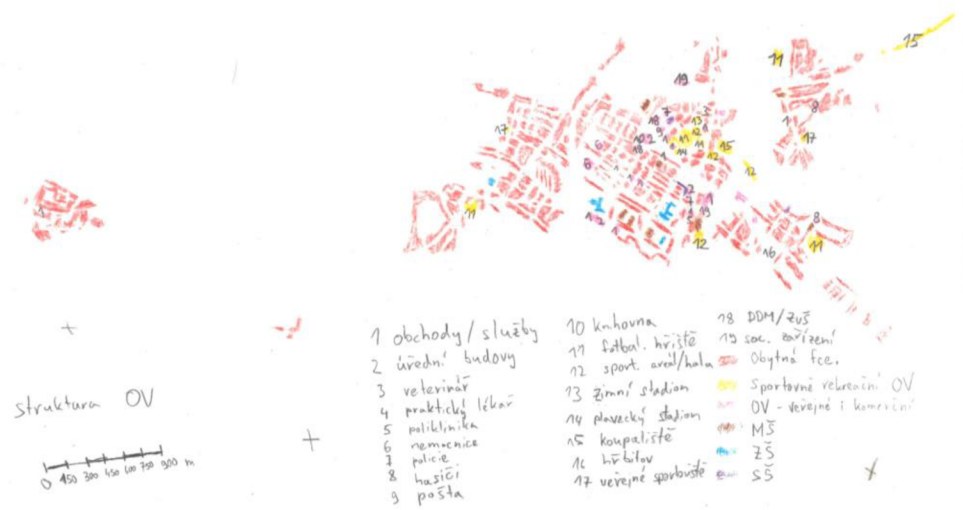 15
11
19
8
17
1
7
3
18
13
9
12
10
2
1
11
12
11
15
18
14
12
17
6
6
1
12
2
1
7
19
8
11
1
2
1
12
16
11
1
struktura OV
0 150 300 450 600 750 900 m
1 obchody / služby
2 úřední budovy
3 veterinář
4 praktický lékař
5 poliklinika
6 nemocnice
7 policie
8 hasiči
9 pošta
10 knihovna
11 fotbal. hřiště
12 sport. areál/hala
13 zimní stadion
14 plavecký stadion
15 koupaliště
16 hřbitov
17 veřejné sportoviště
18 DDM/ZUŠ
19 soc. zařízení
Obytná fce.
Sportovně rekreační OV
OV - veřejné i komerční
MŠ
ZŠ
SŠ